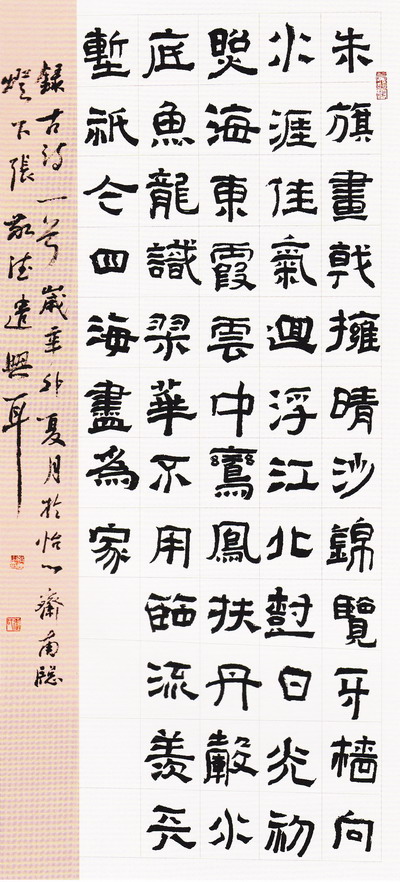 朱旗畫戟擁晴沙錦覽牙檣向
水涯佳氣迴浮江北尌日光初
照海東霞雲中鸞鳳扶丹轂水
底魚龍識翠華不用臨流羨天
塹祇今四海盡為家
錄古詩一首歲辛卯夏月於怡心齋南牕
燈下張敬德遣興耳